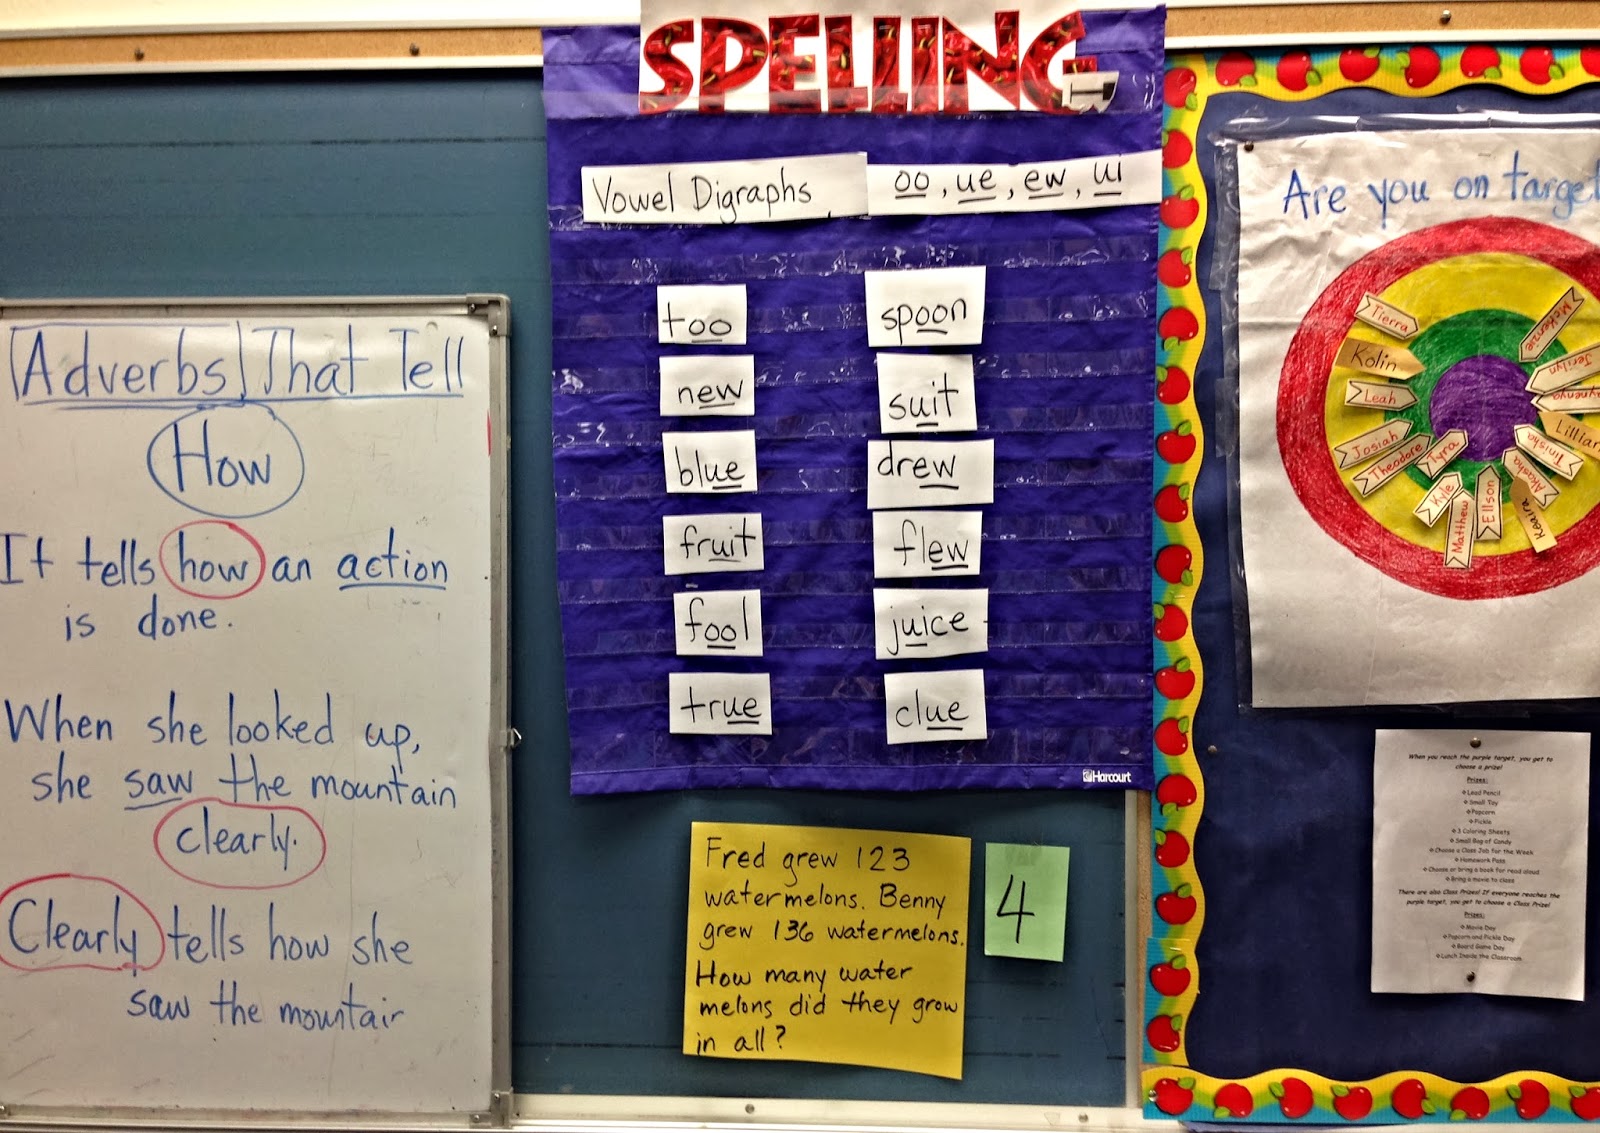 Adverbs That Tell
How
It tells how an action
is done.
When she looked up,
she saw the mountain
clearly.
Clearly tells how she
saw the mountain
SPELLING
Vowel Digraphs
oo, ue, ew, ui
too
new
blue
fruit
fool
true
spoon
suit
drew
flew
juice
clue
Harcourt
Fred grew 123
watermelons. Benny
grew 136 watermelons.
How many water
melons did they grow
in all?
4
Are you on target
Tierra
Kolin
Leah
Josiah
Theodore
Tyra
Kyle
Matthew
Ellson
Akasha
Tinisha
Lillian
Jerilyn
McKenzie
When you reach the purple target, you get to
choose a prize!
Prizes:
❖ Lead Pencil
❖ Small Toy
❖ Popcorn
❖ Pickle
❖ 3 Coloring Sheets
❖ Small Bag of Candy
❖ Choose a Class Job for the Week
❖ Homework Pass
❖ Choose or bring a book for read aloud
❖ Bring a movie to class
There are also Class Prizes! If everyone reaches the
purple target, you get to choose a Class Prize!
Prizes:
❖ Movie Day
❖ Popcorn and Pickle Day
❖ Board Game Day
❖ Lunch Inside the Classroom